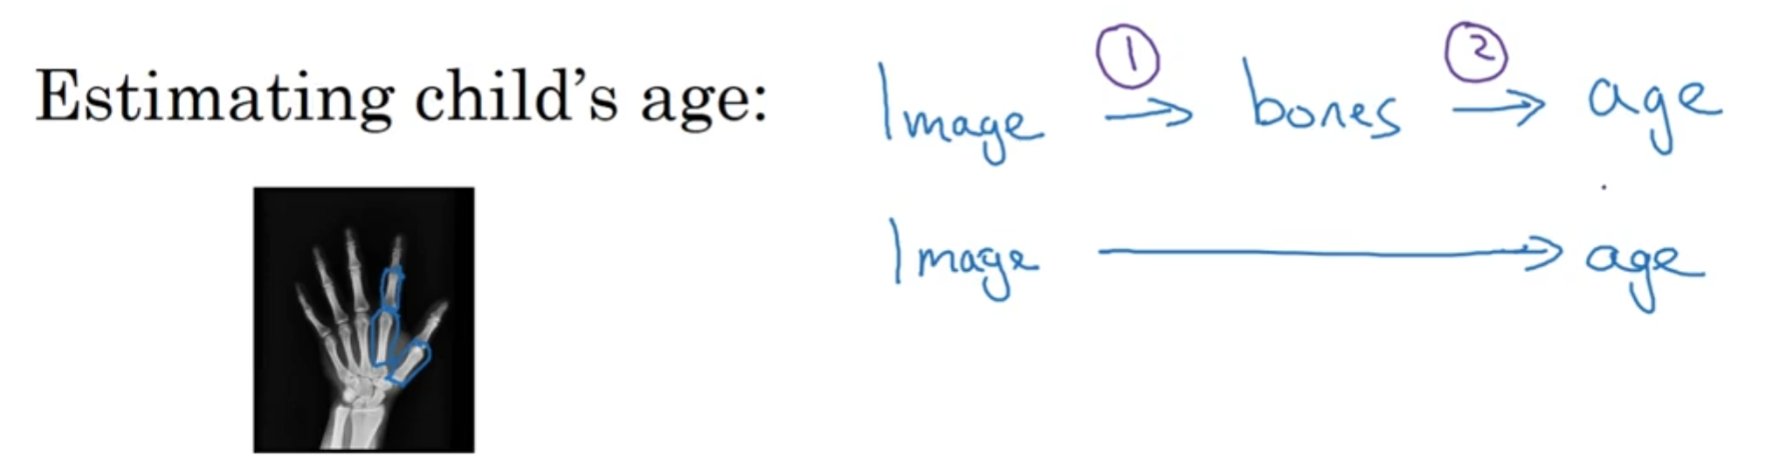 Estimating child's age:
① ②
Image → bones → age
Image → age